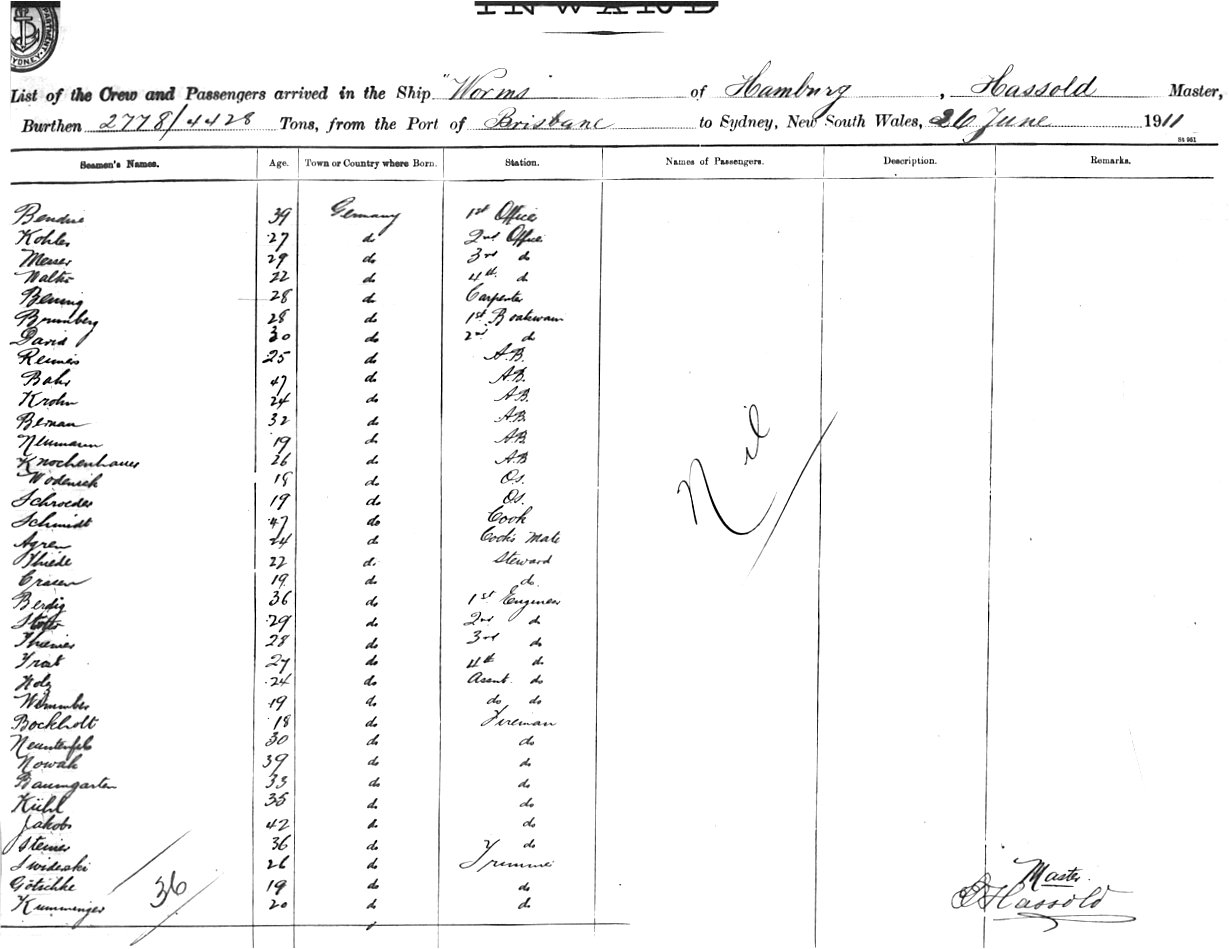 INWARD
List of the Crew and Passengers arrived in the Ship "Worms of Hamburg, Hassold Master,
Burthen 2778/4428 Tons, from the Port of Brisbane to Sydney, New South Wales, 26 June 1911
St 951
Seamen's Names. Age. Town or Country where Born. Station. Names of Passengers. Description. Remarks.
39 Germany 1st Officer
Kohler 27 do 2nd Office
Messer 29 do 3rd do
22 do 4th do
Bening 28 do Carpenter
Brumberg 28 do 1st
David 30 do 2nd do
Reimers 25 do A.B.
Bahr 47 do A.B.
Krohn 24 do A.B.
Beman 32 do A.B.
Neumann 19 do A.B.
Knochenhauer 26 do A.B
18 do O.S.
Schroeder 19 do O.S.
Schmidt 47 do Cook
Agren 24 do Cook's Mate
Thiede 22 do Steward
19 do do
Berdig 36 do 1st Engineer
29 do 2nd do
28 do 3rd do
27 do 4th do
24 do Assnt. do
19 do do do
Bockholt 18 do Fireman
30 do do
Nowak 39 do do
Baumgarten 33 do do
Kühl 35 do do
Jakobs 42 do do
Steiner 36 do do
Swiderski 26 do Trimmer
Götschke 19 do do
Kumminger 20 do do
36
Nil
Master
Hassold